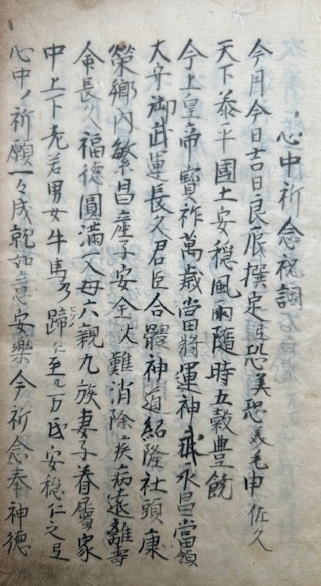 心中祈念祝詞
今月今日吉日良辰撰定氐恐美恐美毛申佐久
天下泰平國土安穏風雨隨時五穀豊饒
今上皇帝寳祚萬歳當將運神武永昌當領
大守御武運長久君臣合體神道紹隆社頭康
榮郷內繁昌産子安全火難消除疾病遠離壽
命長久福德圓滿父母六親九族妻子眷屬家
中上下老若男女牛馬乃蹄仁至九万民安穏仁之氐
心中ノ祈願一々成就如意安樂今祈念奉神德